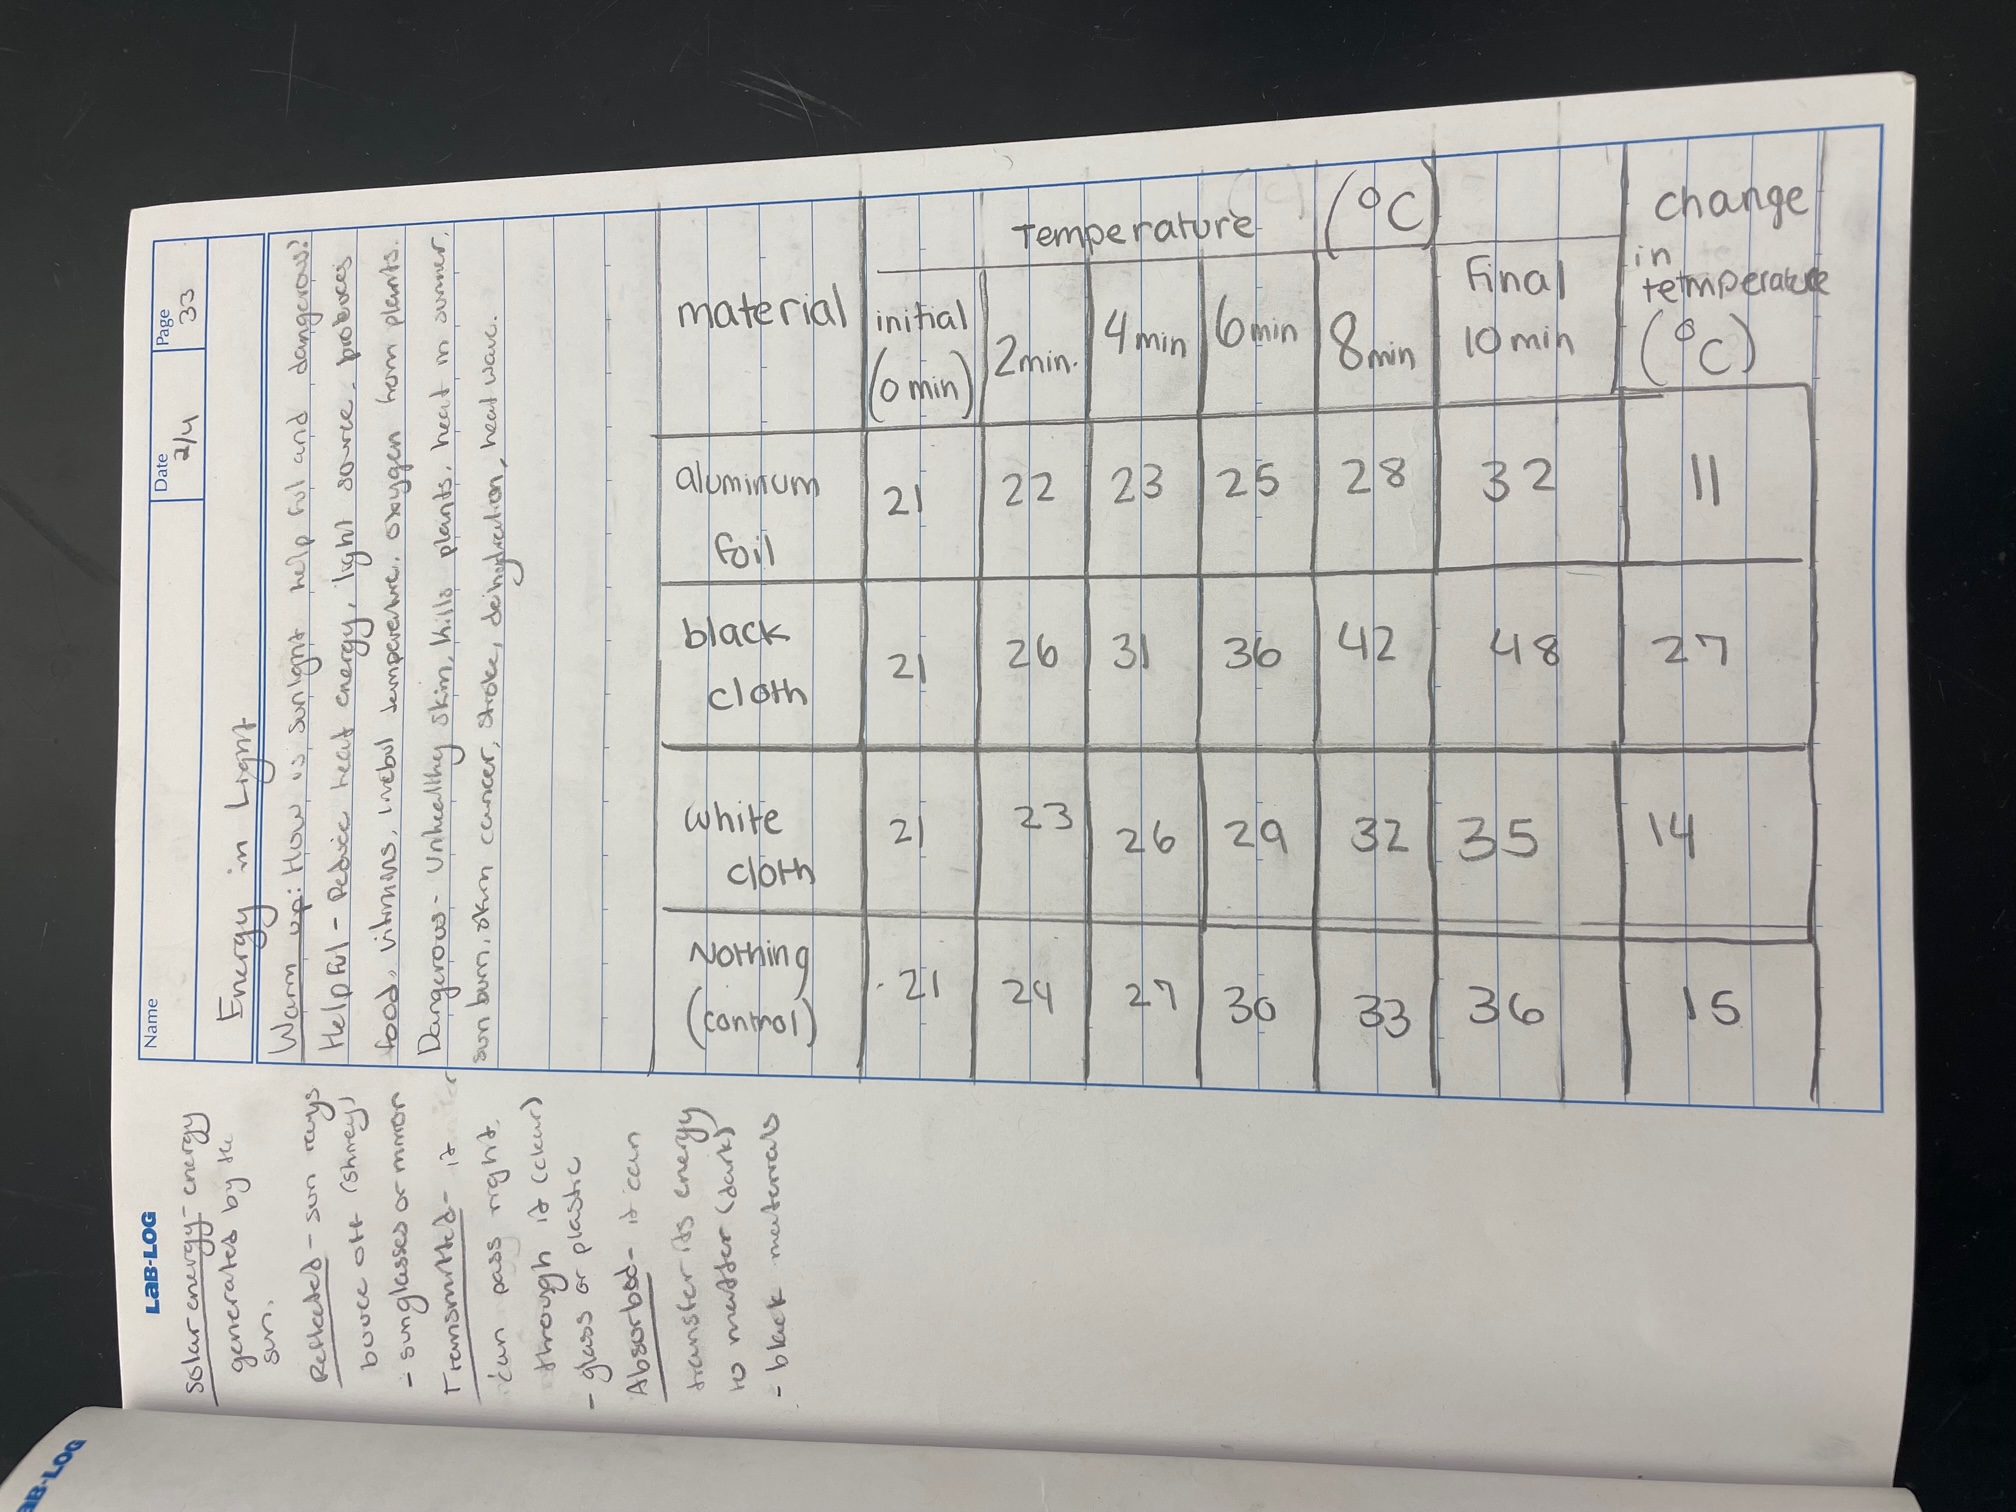 LaB-LOG
Name
Date
2/4
Page
33
Energy in Light
Warm up: How is sunlight helpful and dangerous?
Helpful - heat energy, light source, produces
food, vitamins, temperature, oxygen from plants.
Dangerous - Unhealthy skin, kills plants, heat in summer,
sun burn, skin cancer, stroke, dehydration, heat wave.
Solar energy - energy
generated by the
sun.
Reflected - sun rays
bounce off (shiney)
- sunglasses or mirror
Transmitted - it
can pass right
through it (clear)
- glass or plastic
Absorbed - it can
transfer its energy
to matter (dark)
- black materials
material
Temperature (°C)
change
in
temperature
(°C)
initial
(0 min)
2 min.
4 min
6 min
8 min
Final
10 min
aluminum
foil
21 22 23 25 28 32 11
black
cloth
21 26 31 36 42 48 27
white
cloth
21 23 26 29 32 35 14
Nothing
(control)
21 24 27 30 33 36 15
aB-LOG